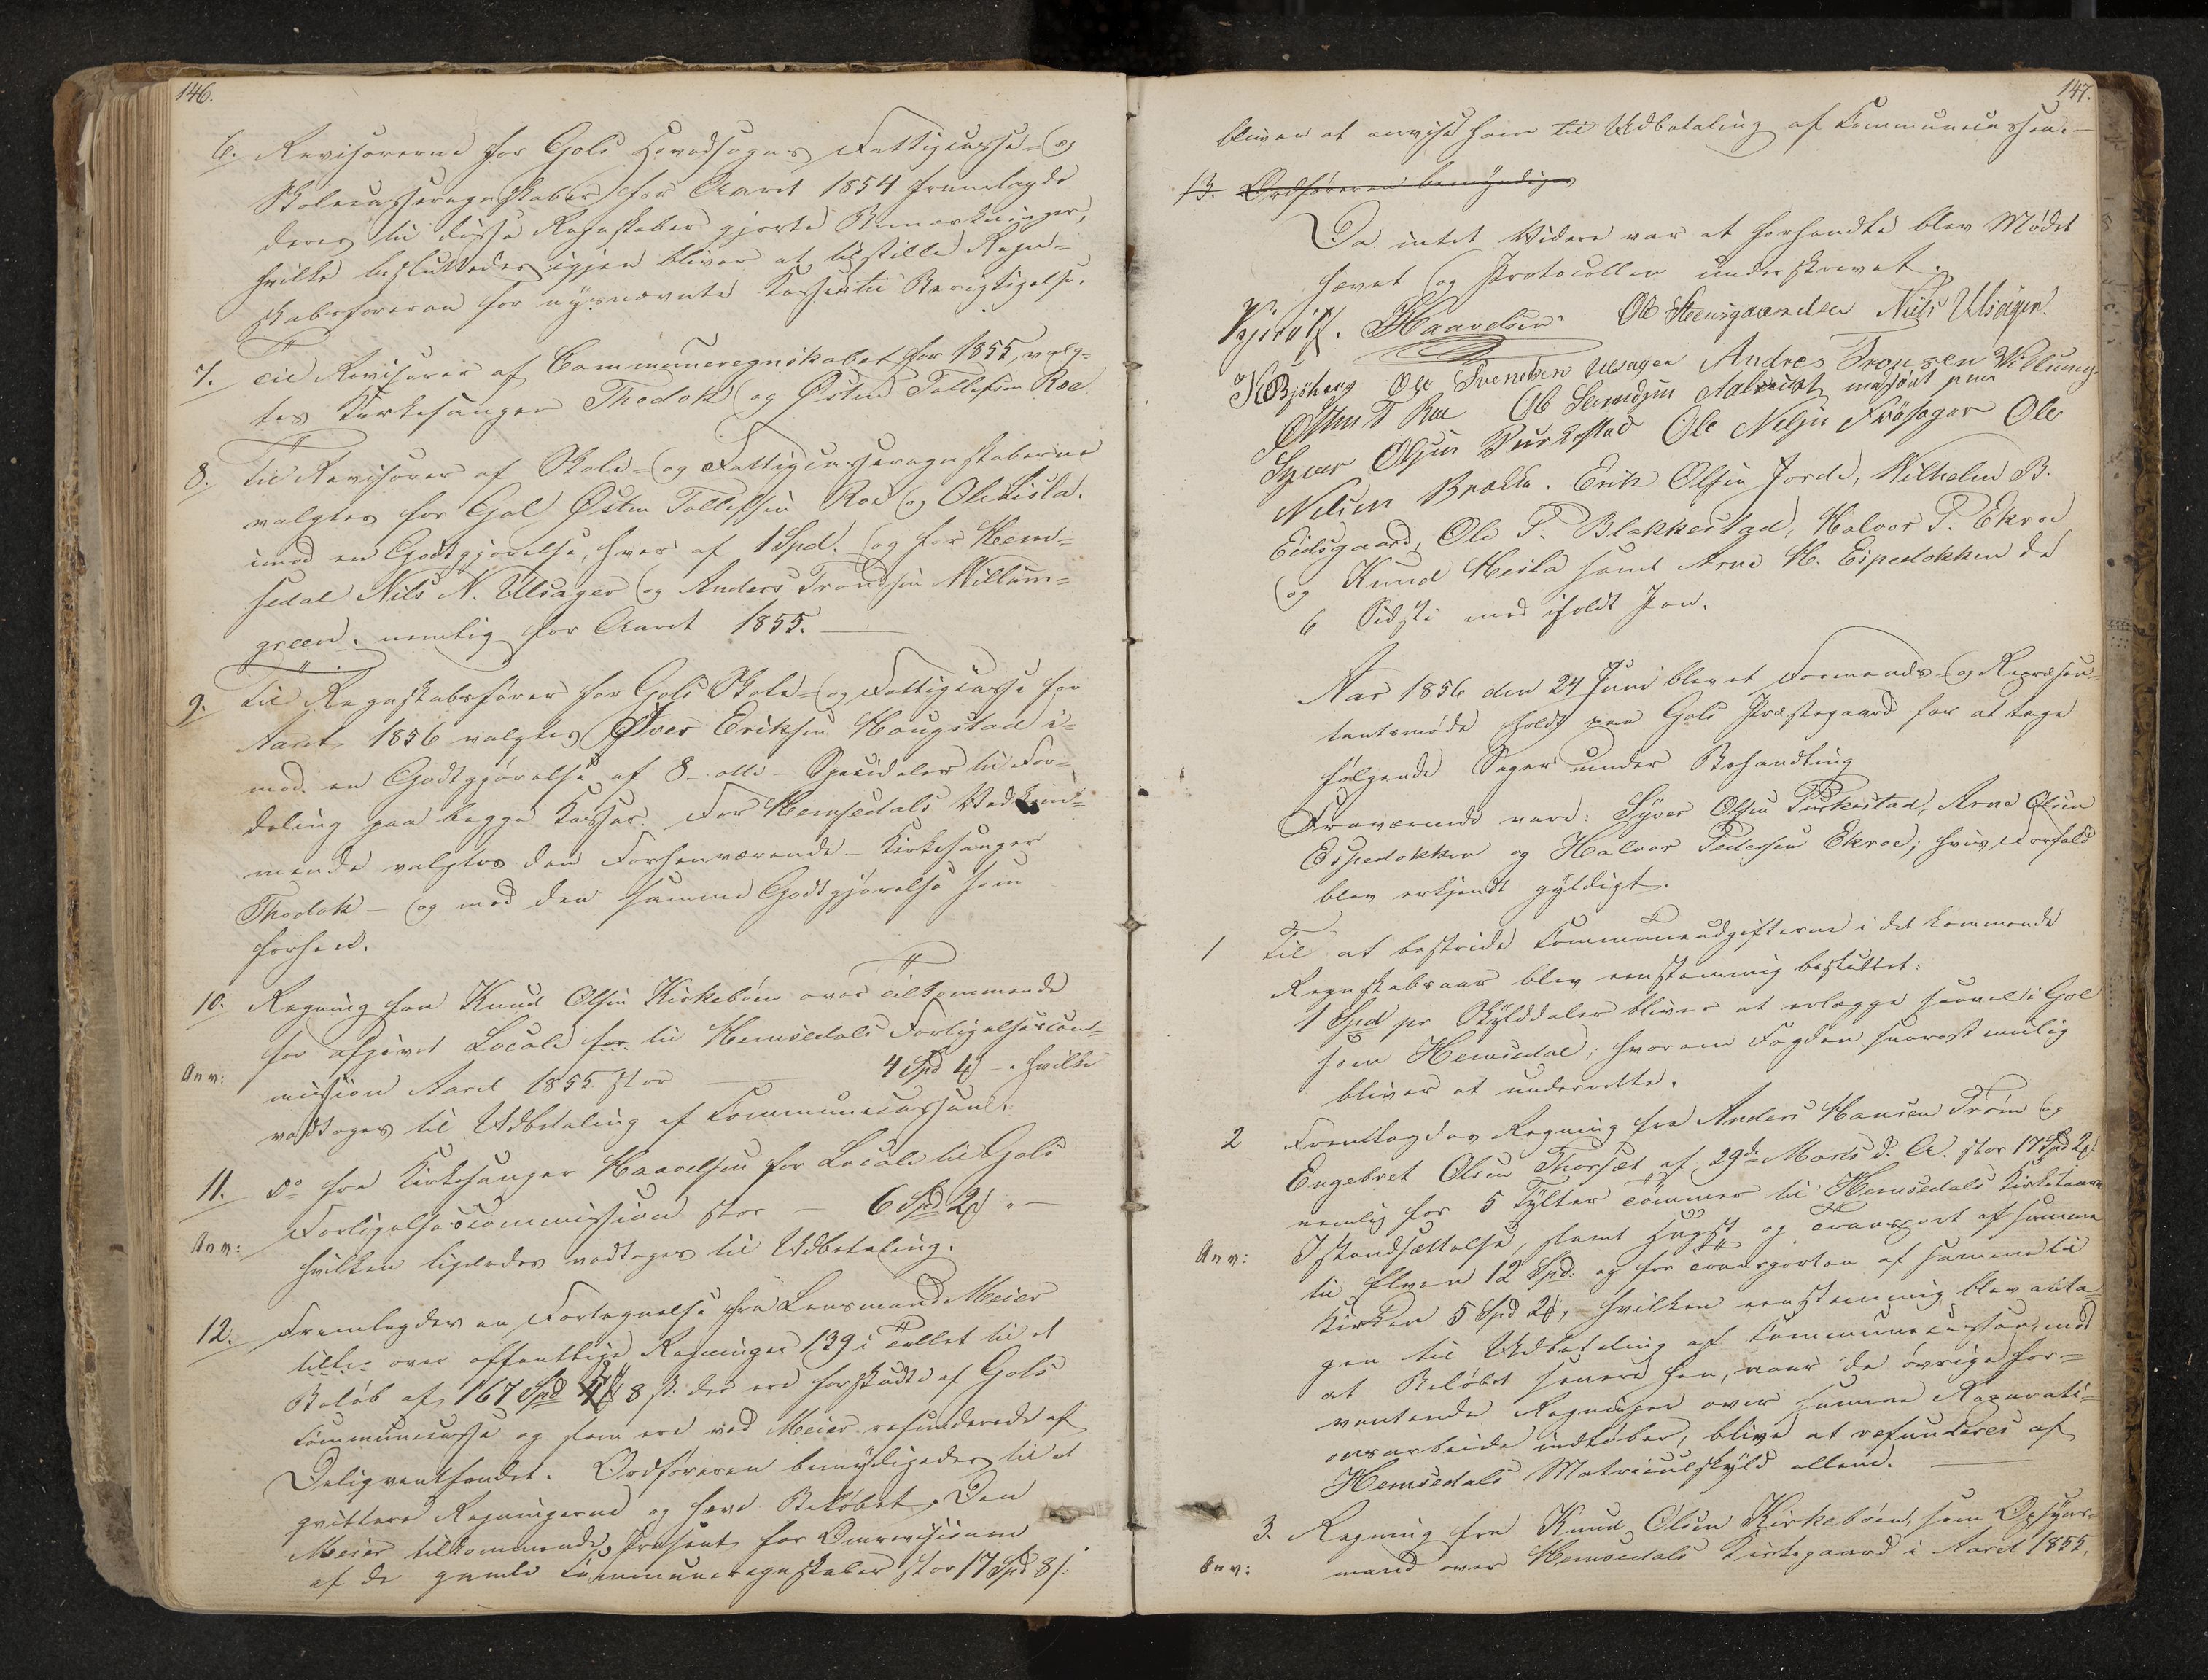 146.
6. Revisorerne for Gols Hovedsogns Fattigcasse- og
Skolecasseregnskaber for Aaret 1854 fremlagde
deres til disse Regnskaber gjorte Bemærkninger,
hvilke besluttedes igjen bliver at tilstille Regn-
skabsføreren for nysnævnte Kasser til Berigtigelse.
7. Til Revisorer af Communeregnskabet for 1855, valg-
tes Kirkesanger Thodok og Østen Tollefsen Roe
8. Til Revisorer af Skole- og Fattigcasseregnskaberne
valgtes for Gol Østen Tollefsen Roe og Ole Lista.
imod en Godtgjørelse, hver af 1 Spd. og for Hem-
sedal Nils N. Ulsager og Anders Trondsen Willum-
green. nemlig for Aaret 1855.
9. Til Regnskabsfører for Gols Skole- og Fattigcasse for
Aaret 1856 valgtes Iver Eriksen Haugstad i-
mod en Godtgjørelse af 8 - otte - Speciedaler til For-
deling paa begge Kasser. For Hemsedals Vedkom-
mende valgtes den Forhenværende - Kirkesanger
Thodok - og med den samme Godtgjørelse som
forhen.
10. Regning fra Knud Olsen Kirkebøen over Tilkommende
for afgivet Locale for til Hemsedals Forligelsescom-
Anv: mission Aaret 1855 stor 4 Spd 4 - . hvilke
vedtoges til Udbetaling af Communecassen.
11. Do fra Kirkesanger Haavelsen for Locale til Gols
Forligelsescommission stor - 6 Spd 2 " -
Anv: hvilken ligeledes vedtoges til Udbetaling.
12. Fremlagdes en Fortegnelse fra Lensmand Meier
tillige over offentlige Regninger 139 i Tallet til et
Beløb af 167 Spd 4 8 sk: der ere forskudte af Gols
Communecasse og som ere ved Meier refunderede af
Deligventfondet. Ordføreren bemyndigedes til at
qvittere Regningerne og hæve Beløbet. Den
Meier tilkommende Procent for Omrevisionen
af de gamle Communeregnskaber stor 17 Spd 8 s:
147.
bliver at anvise ham til Udbetaling af Communecassen. -
13. Ordføreren bemyndiges
Da intet Videre var at forhandle blev Mødet
hævet og Protocollen underskrevet.
Haavelsen Ole Steensgaarden Niels Ulsager
Ole Svendsen Ulsager Andres Tronsen Villumg.
Østen T Roe Ole medført pen
Syver Olsen Purkestad Ole Nilsen Frøsager Ole
Nilsen Brolla. Erik Olsen Jorde, Wilhelm B.
Eidsgaard, Ole T. Blakkestad, Halvor P. Ekroe
og Knud Heila samt Arne H. Espedokken de
6 Sidste med iholdt Pen.
Aar 1856 den 24 Juni blev et Formands- og Repræsen-
tantsmøde holdt paa Gols Præstegaard for at tage
følgende Sager under Behandling
Fraværende vare: Syver Olsen Purkestad, Arne Olsen
Espedokken og Halvor Pedersen Ekroe; hvis Forfald
blev erkjendt gyldigt.
1 Til at bestride Communeudgifterne i det kommende
Regnskabsaar blev eenstemmig besluttet:
1 Spd pr Skylddaler bliver at erlægge saavel i Gol
som Hemsedal; hvorom Fogden snarest mulig
bliver at underrette.
2 Fremlagdes Regning fra Anders Hansen Trøim og
Engebret Olsen Thorset af 29de Marts d. A. stor 17 Spd 2
nemlig for 5 Tylter Tømmer til Hemsedals Kirketaarn
Anv: Istandsættelse, samt Hugst og Transport af samme
til Elven 12 Spd: og for Transporten af samme til
Kirken 5 Spd 2, hvilken eenstemmig blev anta-
gen til Udbetaling af Communecassen, mod
at Beløbet senere hen, naar de øvrige for-
ventende Regninger over samme Reparati-
onsarbeide indløber, blive at refunderes af
Hemsedals Matriculskyld allene.
3. Regning fra Knud Olsen Kirkebøen, som Opsyns-
Anv: mand over Hemsedals Kirkegaard i Aaret 1855.